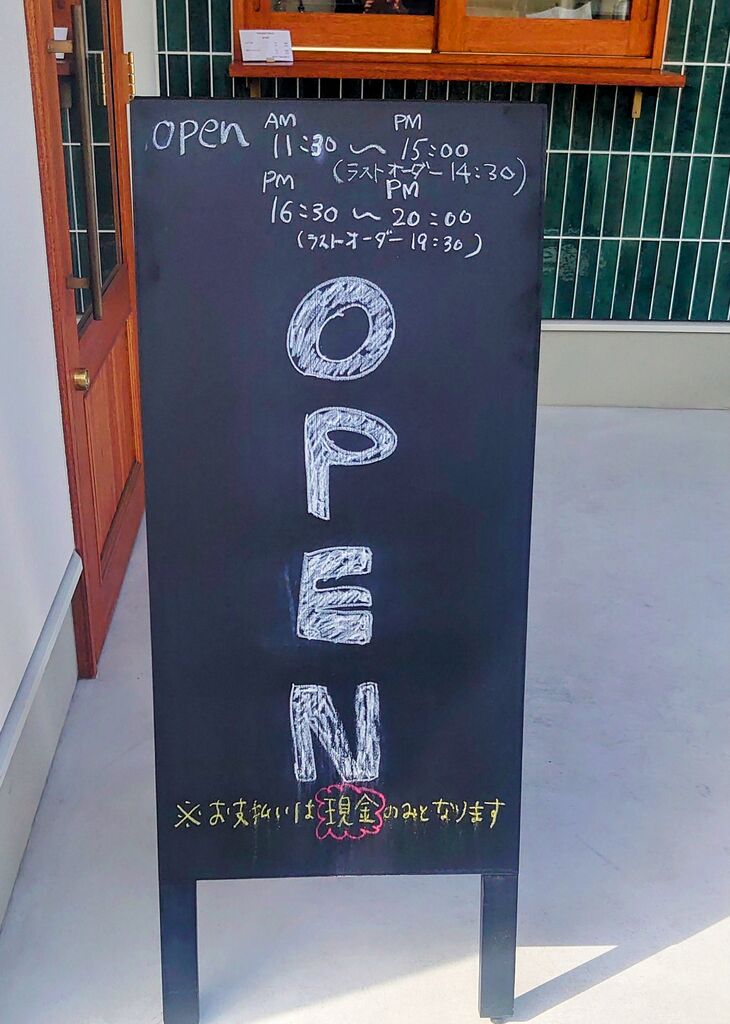 open AM 11:30 〜 PM 15:00
(ラストオーダー 14:30)
PM 16:30 〜 PM 20:00
(ラストオーダー 19:30)
OPEN
※お支払いは現金のみとなります